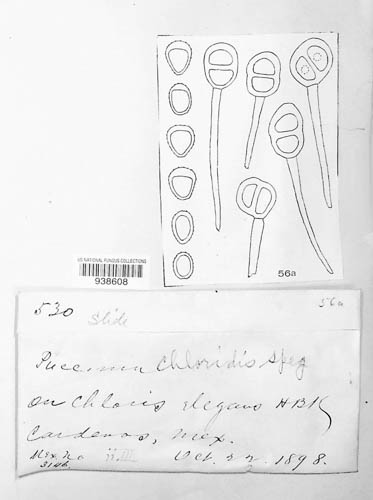 56a
US NATIONAL FUNGUS COLLECTIONS
938608
530 56a
Slide
Puccinia Chloridis Speg
on Chloris elegans HBK
Cardenas, Mex.
Mex. No ii, III Oct. 22 1898.
3146